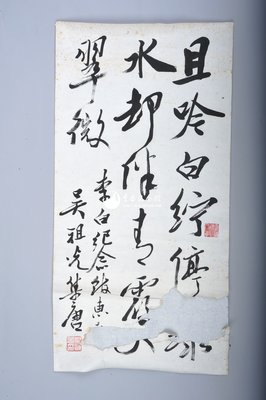 且吟白紵停
水却伴青霞
翠微
李白纪念馆
吴祖光集唐